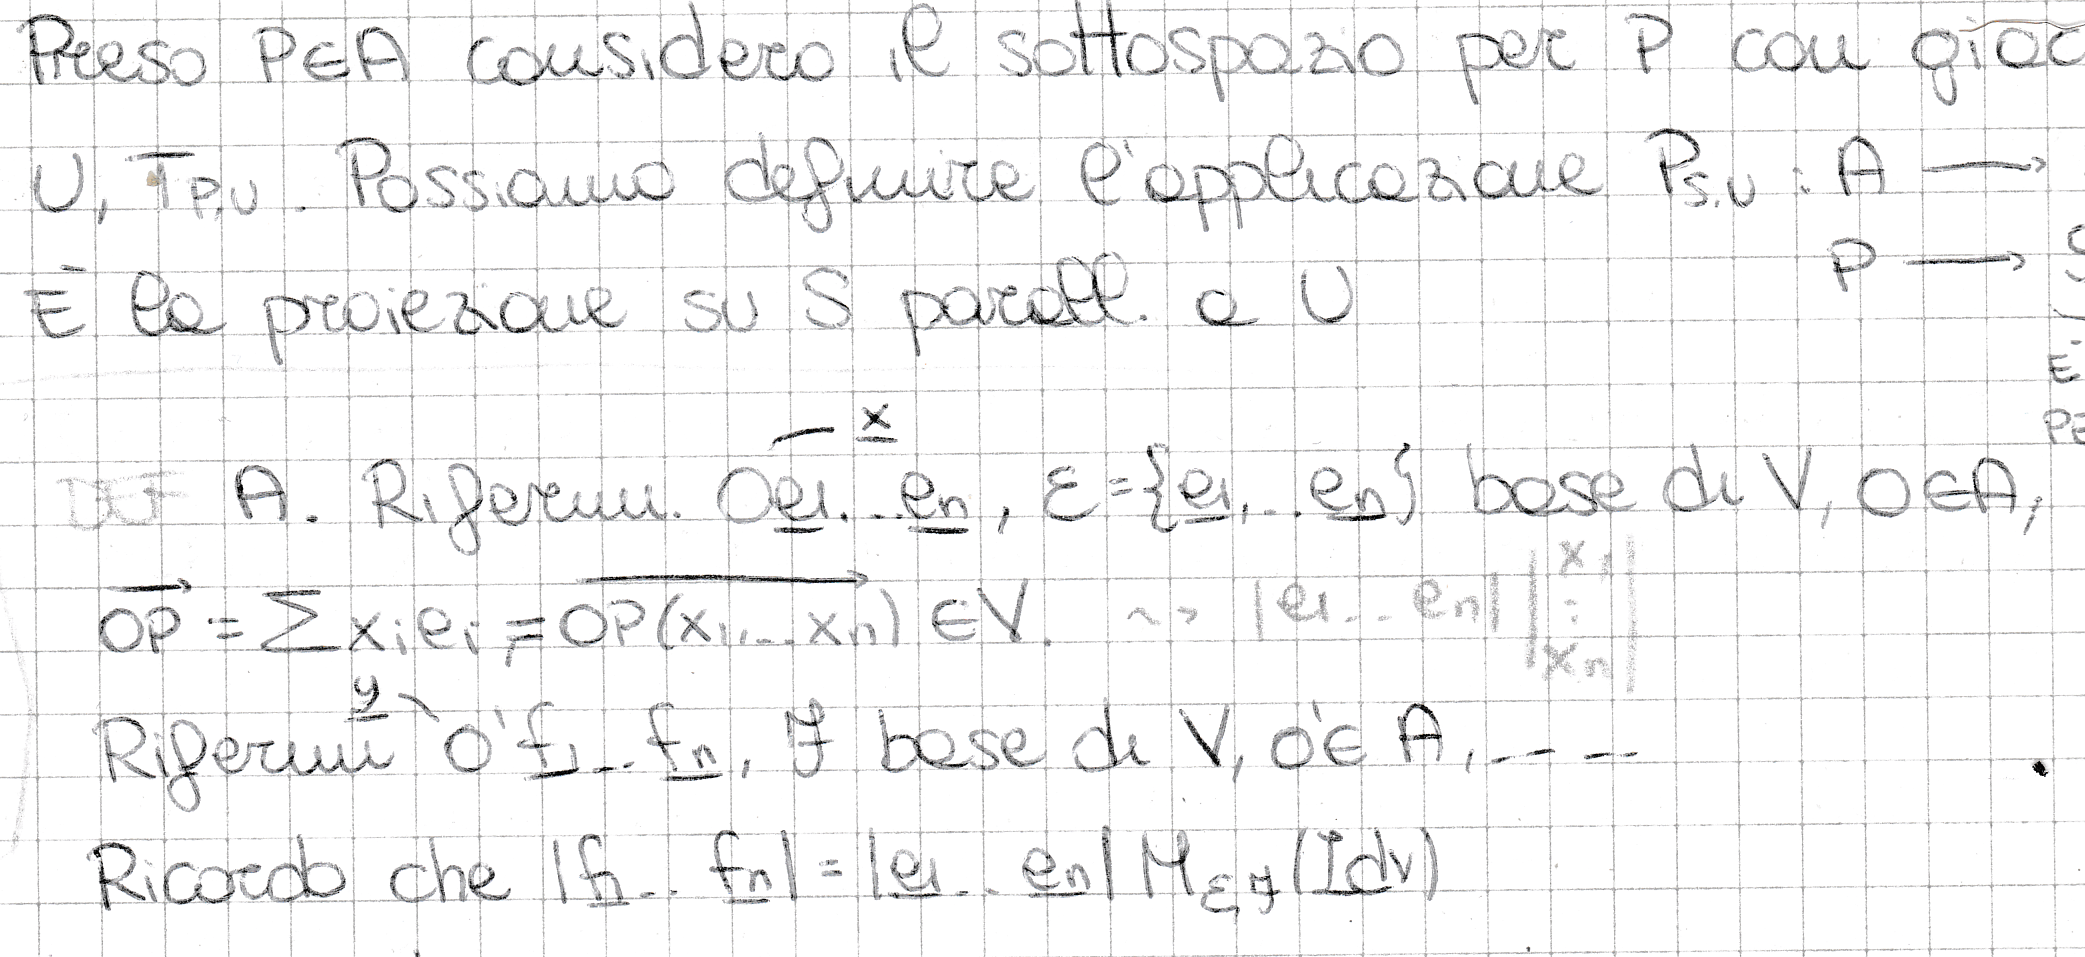 Preso P∈A considero il sottospazio per P con giac
U, T_{P,U}. Possiamo definire l'applicazione P_{S,U} : A →
P → S
È la proiezione su S parall. a U
E'
PE
x
DEF A. Riferim. Oe1...en, ε={e1,...en} base di V, O∈A;
OP = Σ xiei = OP(x1,...xn) ∈V. ~> |e1...en| |x1 : xn|
y
Riferim O'f1...fn, F base di V, O'∈A, - - -
Ricordo che |f1...fn|=|e1...en| M_{ε,F}(Idv)